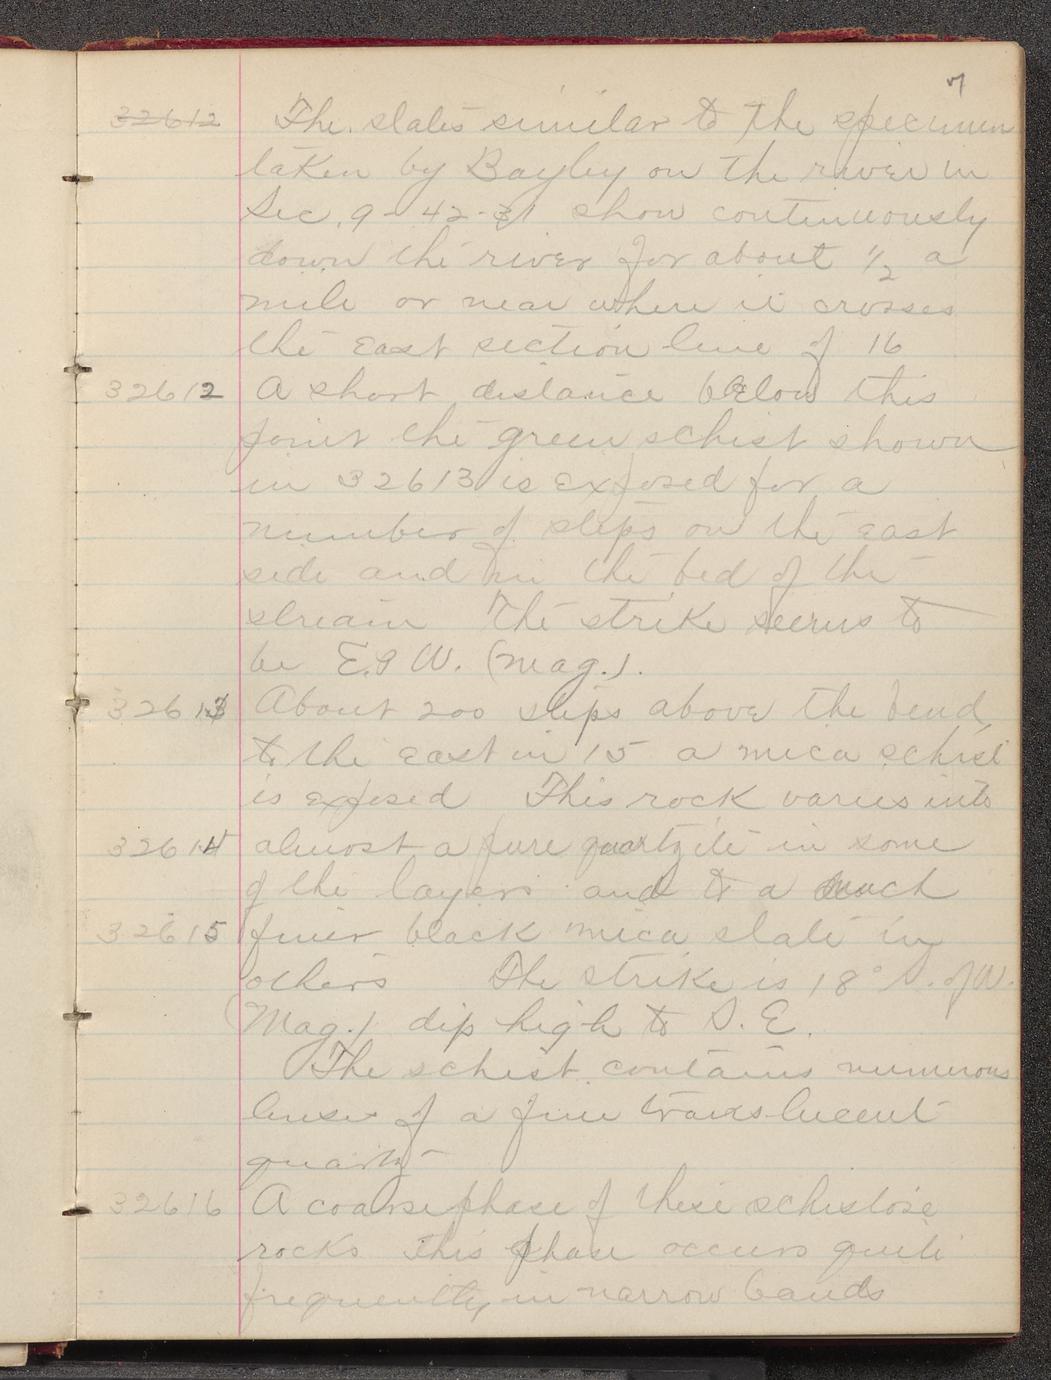 7
32612 The slates similar to the specimen
taken by Bayley on the river in
Sec. 9-42-31 show continuously
down the river for about 1/2 a
mile or near where it crosses
the east section line of 16
32612 A short distance below this
point the green schist shown
in 32613 is exposed for a
number of steps on the east
side and in the bed of the
stream The strike seems to
be E. & W. (Mag.).
32613 About 200 steps above the bend
to the east in 15 a mica schist
is exposed This rock varies into
32614 almost a pure quartzite in some
of the layers and to a much
32615 finer black mica slate in
others The strike is 18° S. of W.
(Mag.) dip high to S. E.
The schist contains numerous
lenses of a fine translucent
quartz
32616 A coarse phase of these schistose
rocks This phase occurs quite
frequently in narrow bands